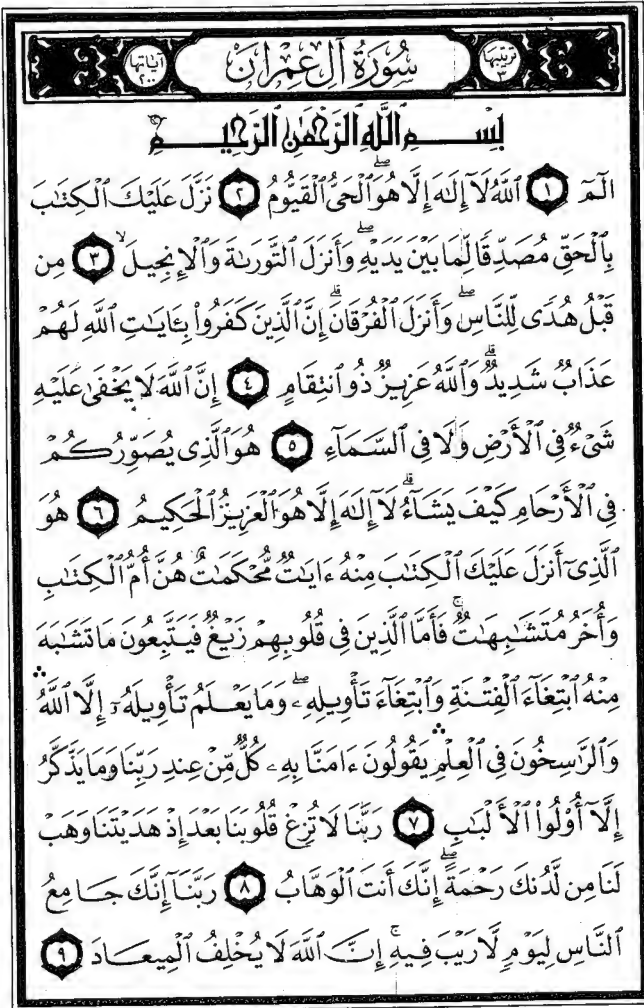 ترتيبها ٣ سُورَةُ آلِ عِمْرَان آياتها ٢٠٠
بِسْمِ ٱللَّهِ ٱلرَّحْمَٰنِ ٱلرَّحِيمِ
الٓمٓ ١ ٱللَّهُ لَآ إِلَٰهَ إِلَّا هُوَ ٱلْحَىُّ ٱلْقَيُّومُ ٢ نَزَّلَ عَلَيْكَ ٱلْكِتَٰبَ
بِٱلْحَقِّ مُصَدِّقًا لِّمَا بَيْنَ يَدَيْهِ وَأَنزَلَ ٱلتَّوْرَىٰةَ وَٱلْإِنجِيلَ ٣ مِن
قَبْلُ هُدًى لِّلنَّاسِ وَأَنزَلَ ٱلْفُرْقَانَ إِنَّ ٱلَّذِينَ كَفَرُوا۟ بِـَٔايَٰتِ ٱللَّهِ لَهُمْ
عَذَابٌ شَدِيدٌ وَٱللَّهُ عَزِيزٌ ذُو ٱنتِقَامٍ ٤ إِنَّ ٱللَّهَ لَا يَخْفَىٰ عَلَيْهِ
شَىْءٌ فِى ٱلْأَرْضِ وَلَا فِى ٱلسَّمَآءِ ٥ هُوَ ٱلَّذِى يُصَوِّرُكُمْ
فِى ٱلْأَرْحَامِ كَيْفَ يَشَآءُ لَآ إِلَٰهَ إِلَّا هُوَ ٱلْعَزِيزُ ٱلْحَكِيمُ ٦ هُوَ
ٱلَّذِىٓ أَنزَلَ عَلَيْكَ ٱلْكِتَٰبَ مِنْهُ ءَايَٰتٌ مُّحْكَمَٰتٌ هُنَّ أُمُّ ٱلْكِتَٰبِ
وَأُخَرُ مُتَشَٰبِهَٰتٌ فَأَمَّا ٱلَّذِينَ فِى قُلُوبِهِمْ زَيْغٌ فَيَتَّبِعُونَ مَا تَشَٰبَهَ
مِنْهُ ٱبْتِغَآءَ ٱلْفِتْنَةِ وَٱبْتِغَآءَ تَأْوِيلِهِۦ وَمَا يَعْلَمُ تَأْوِيلَهُۥٓ إِلَّا ٱللَّهُ
وَٱلرَّٰسِخُونَ فِى ٱلْعِلْمِ يَقُولُونَ ءَامَنَّا بِهِۦ كُلٌّ مِّنْ عِندِ رَبِّنَا وَمَا يَذَّكَّرُ
إِلَّآ أُو۟لُوا۟ ٱلْأَلْبَٰبِ ٧ رَبَّنَا لَا تُزِغْ قُلُوبَنَا بَعْدَ إِذْ هَدَيْتَنَا وَهَبْ
لَنَا مِن لَّدُنكَ رَحْمَةً إِنَّكَ أَنتَ ٱلْوَهَّابُ ٨ رَبَّنَآ إِنَّكَ جَامِعُ
ٱلنَّاسِ لِيَوْمٍ لَّا رَيْبَ فِيهِ إِنَّ ٱللَّهَ لَا يُخْلِفُ ٱلْمِيعَادَ ٩